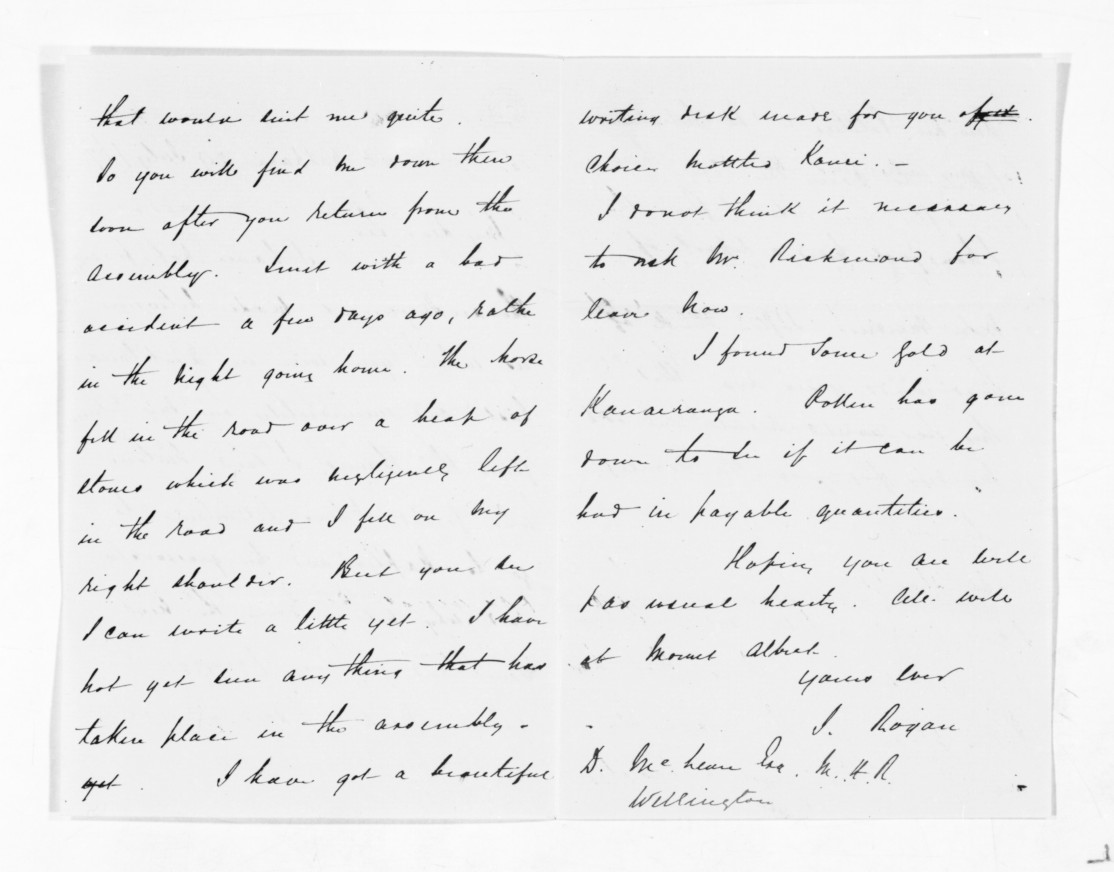 that would suit me quite.
So you will find me down there
soon after you return from the
Assembly. I met with a bad
accident a few days ago, rather
in the night going home. The horse
fell in the road over a heap of
stones which was negligently left
in the road and I fell on my
right shoulder. But you see
I can write a little yet. I have
not yet seen anything that has
taken place in the assembly.
yet. I have got a beautiful
writing desk made for you of
choice mottled Kauri. -
I do not think it necessary
to ask Mr. Richmond for
leave now.
I found some gold at
Kauaeranga. Pollen has gone
down to see if it can be
had in payable quantities.
Hoping you are well
& as usual hearty. All well
at Mount Albert.
Yours ever
J. Rogan
D. McLean Esq. M.H.R.
Wellington